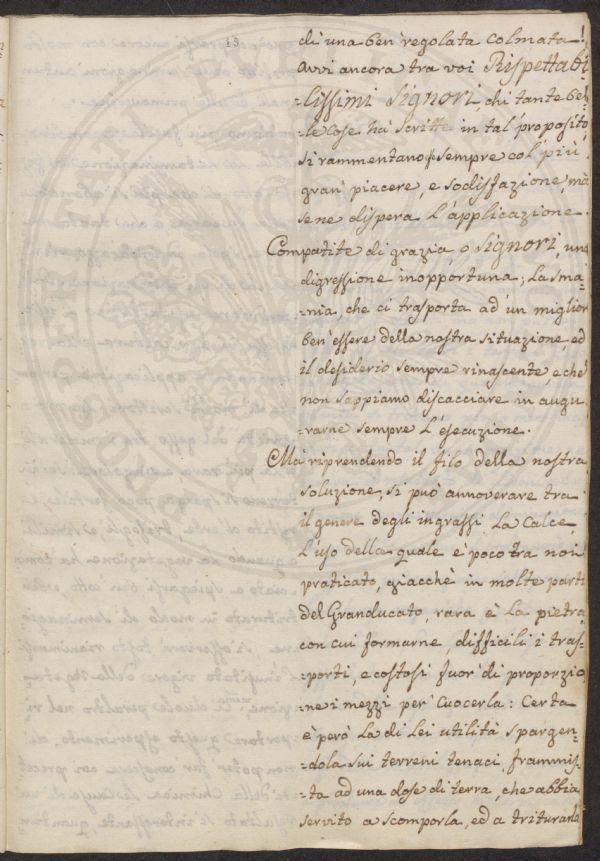 19
di una ben regolata Colmata!
avvi ancora tra voi Rispettabi
=lissimi Signori, chi tante bel=
=le cose hà scritte in tal proposito,
si rammentano sempre col più
gran piacere, e sodisfazione, mà
se ne dispera l'applicazione.
Compatite di grazia, o Signori, una
digressione inopportuna; La sma=
=nia, che ci trasporta ad un miglior
ben'essere della nostra situazione, ed
il desiderio sempre rinascente, e chè
non sappiamo discacciare in augu
=rarne sempre l'esecuzione.
Ma riprendendo il filo della nostra
soluzione, si può annoverare tra
il genere degli ingrassi La Calce,
L'uso della quale è poco tra noi
praticato, giacchè in molte parti
del Granducato, rara è La pietra,
con cui formarne, difficili i tras=
=porti, e costosi fuor di proporzio
=ne i mezzi per Cuocerla: Certa
è però La di Lei utilità spargen=
=dola sui terreni tenaci, frammis=
=ta ad una dose di terra, che abbia
servito a scomporla, ed a triturarla